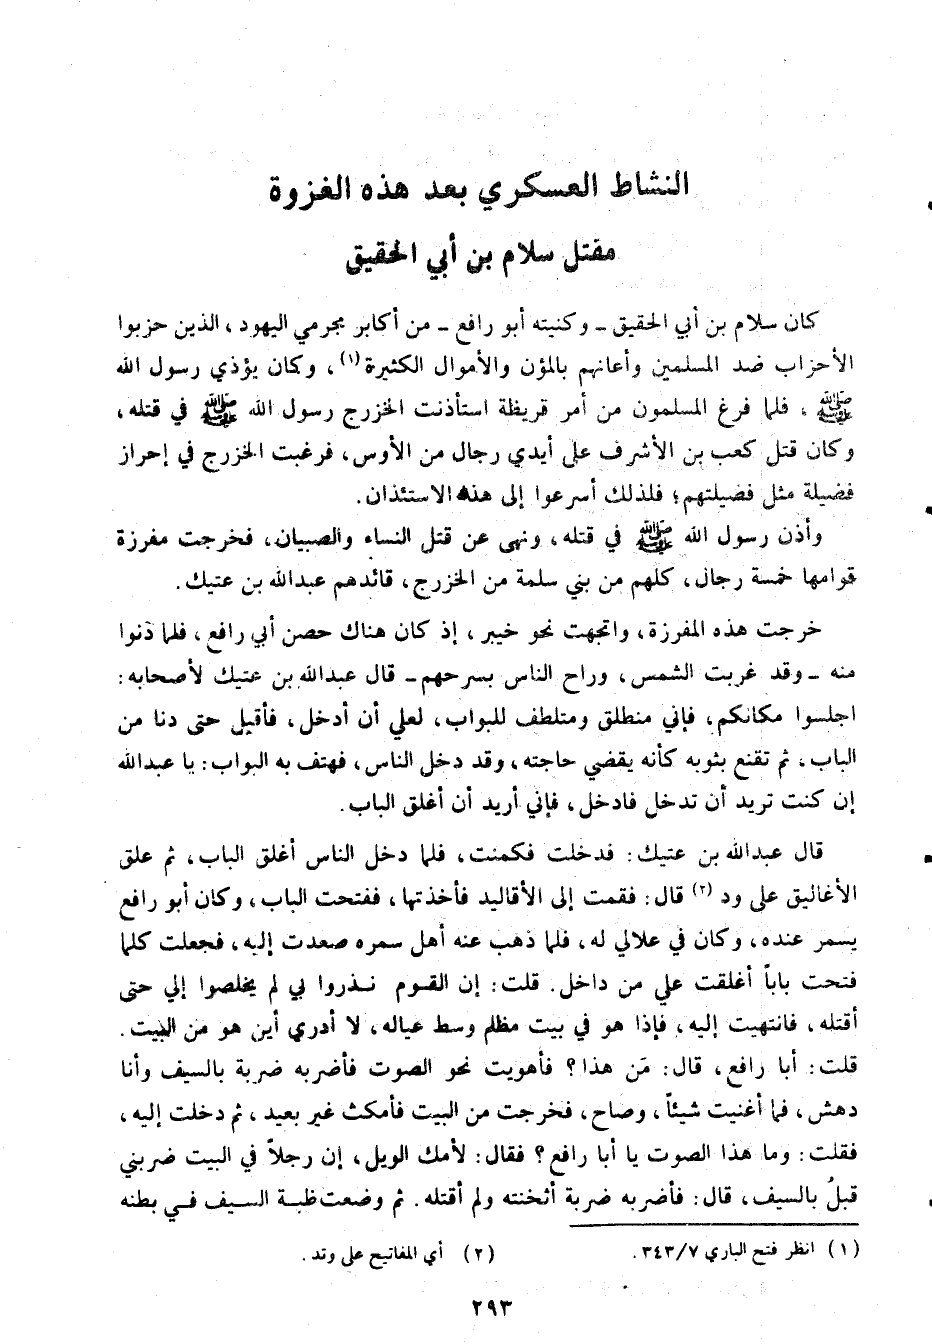 النشاط العسكري بعد هذه الغزوة
مقتل سلام بن أبي الحقيق
كان سلام بن أبي الحقيق ـ وكنيته أبو رافع ـ من أكابر مجرمي اليهود، الذين حزبوا
الأحزاب ضد المسلمين وأعانهم بالمؤن والأموال الكثيرة(١)، وكان يؤذي رسول الله
ﷺ، فلما فرغ المسلمون من أمر قريظة استأذنت الخزرج رسول الله ﷺ في قتله،
وكان قتل كعب بن الأشرف على أيدي رجال من الأوس، فرغبت الخزرج في إحراز
فضيلة مثل فضيلتهم؛ فلذلك أسرعوا إلى هذه الاستئذان.
وأذن رسول الله ﷺ في قتله، ونهى عن قتل النساء والصبيان، فخرجت مفرزة
قوامها خمسة رجال، كلهم من بني سلمة من الخزرج، قائدهم عبدالله بن عتيك.
خرجت هذه المفرزة، واتجهت نحو خيبر، إذ كان هناك حصن أبي رافع، فلما دنوا
منه ـ وقد غربت الشمس، وراح الناس بسرحهم ـ قال عبدالله بن عتيك لأصحابه:
اجلسوا مكانكم، فإني منطلق ومتلطف للبواب، لعلي أن أدخل، فأقبل حتى دنا من
الباب، ثم تقنع بثوبه كأنه يقضي حاجته، وقد دخل الناس، فهتف به البواب: يا عبدالله
إن كنت تريد أن تدخل فادخل، فإني أريد أن أغلق الباب.
قال عبدالله بن عتيك: فدخلت فكمنت، فلما دخل الناس أغلق الباب، ثم علق
الأغاليق على ود(٢) قال: فقمت إلى الأقاليد فأخذتها، ففتحت الباب، وكان أبو رافع
يسمر عنده، وكان في علالي له، فلما ذهب عنه أهل سمره صعدت إليه، فجعلت كلما
فتحت باباً أغلقت علي من داخل. قلت: إن القوم نذروا بي لم يخلصوا إلي حتى
أقتله، فانتهيت إليه، فإذا هو في بيت مظلم وسط عياله، لا أدري أين هو من البيت.
قلت: أبا رافع، قال: مَن هذا؟ فأهويت نحو الصوت فأضربه ضربة بالسيف وأنا
دهش، فما أغنيت شيئاً، وصاح، فخرجت من البيت فأمكث غير بعيد، ثم دخلت إليه،
فقلت: وما هذا الصوت يا أبا رافع؟ فقال: لأمك الويل، إن رجلاً في البيت ضربني
قبلُ بالسيف، قال: فأضربه ضربة أثخنته ولم أقتله. ثم وضعت ظبة السيف في بطنه
(١) انظر فتح الباري ٣٤٣/٧. (٢) أي المفاتيح على وتد.
٢٩٣